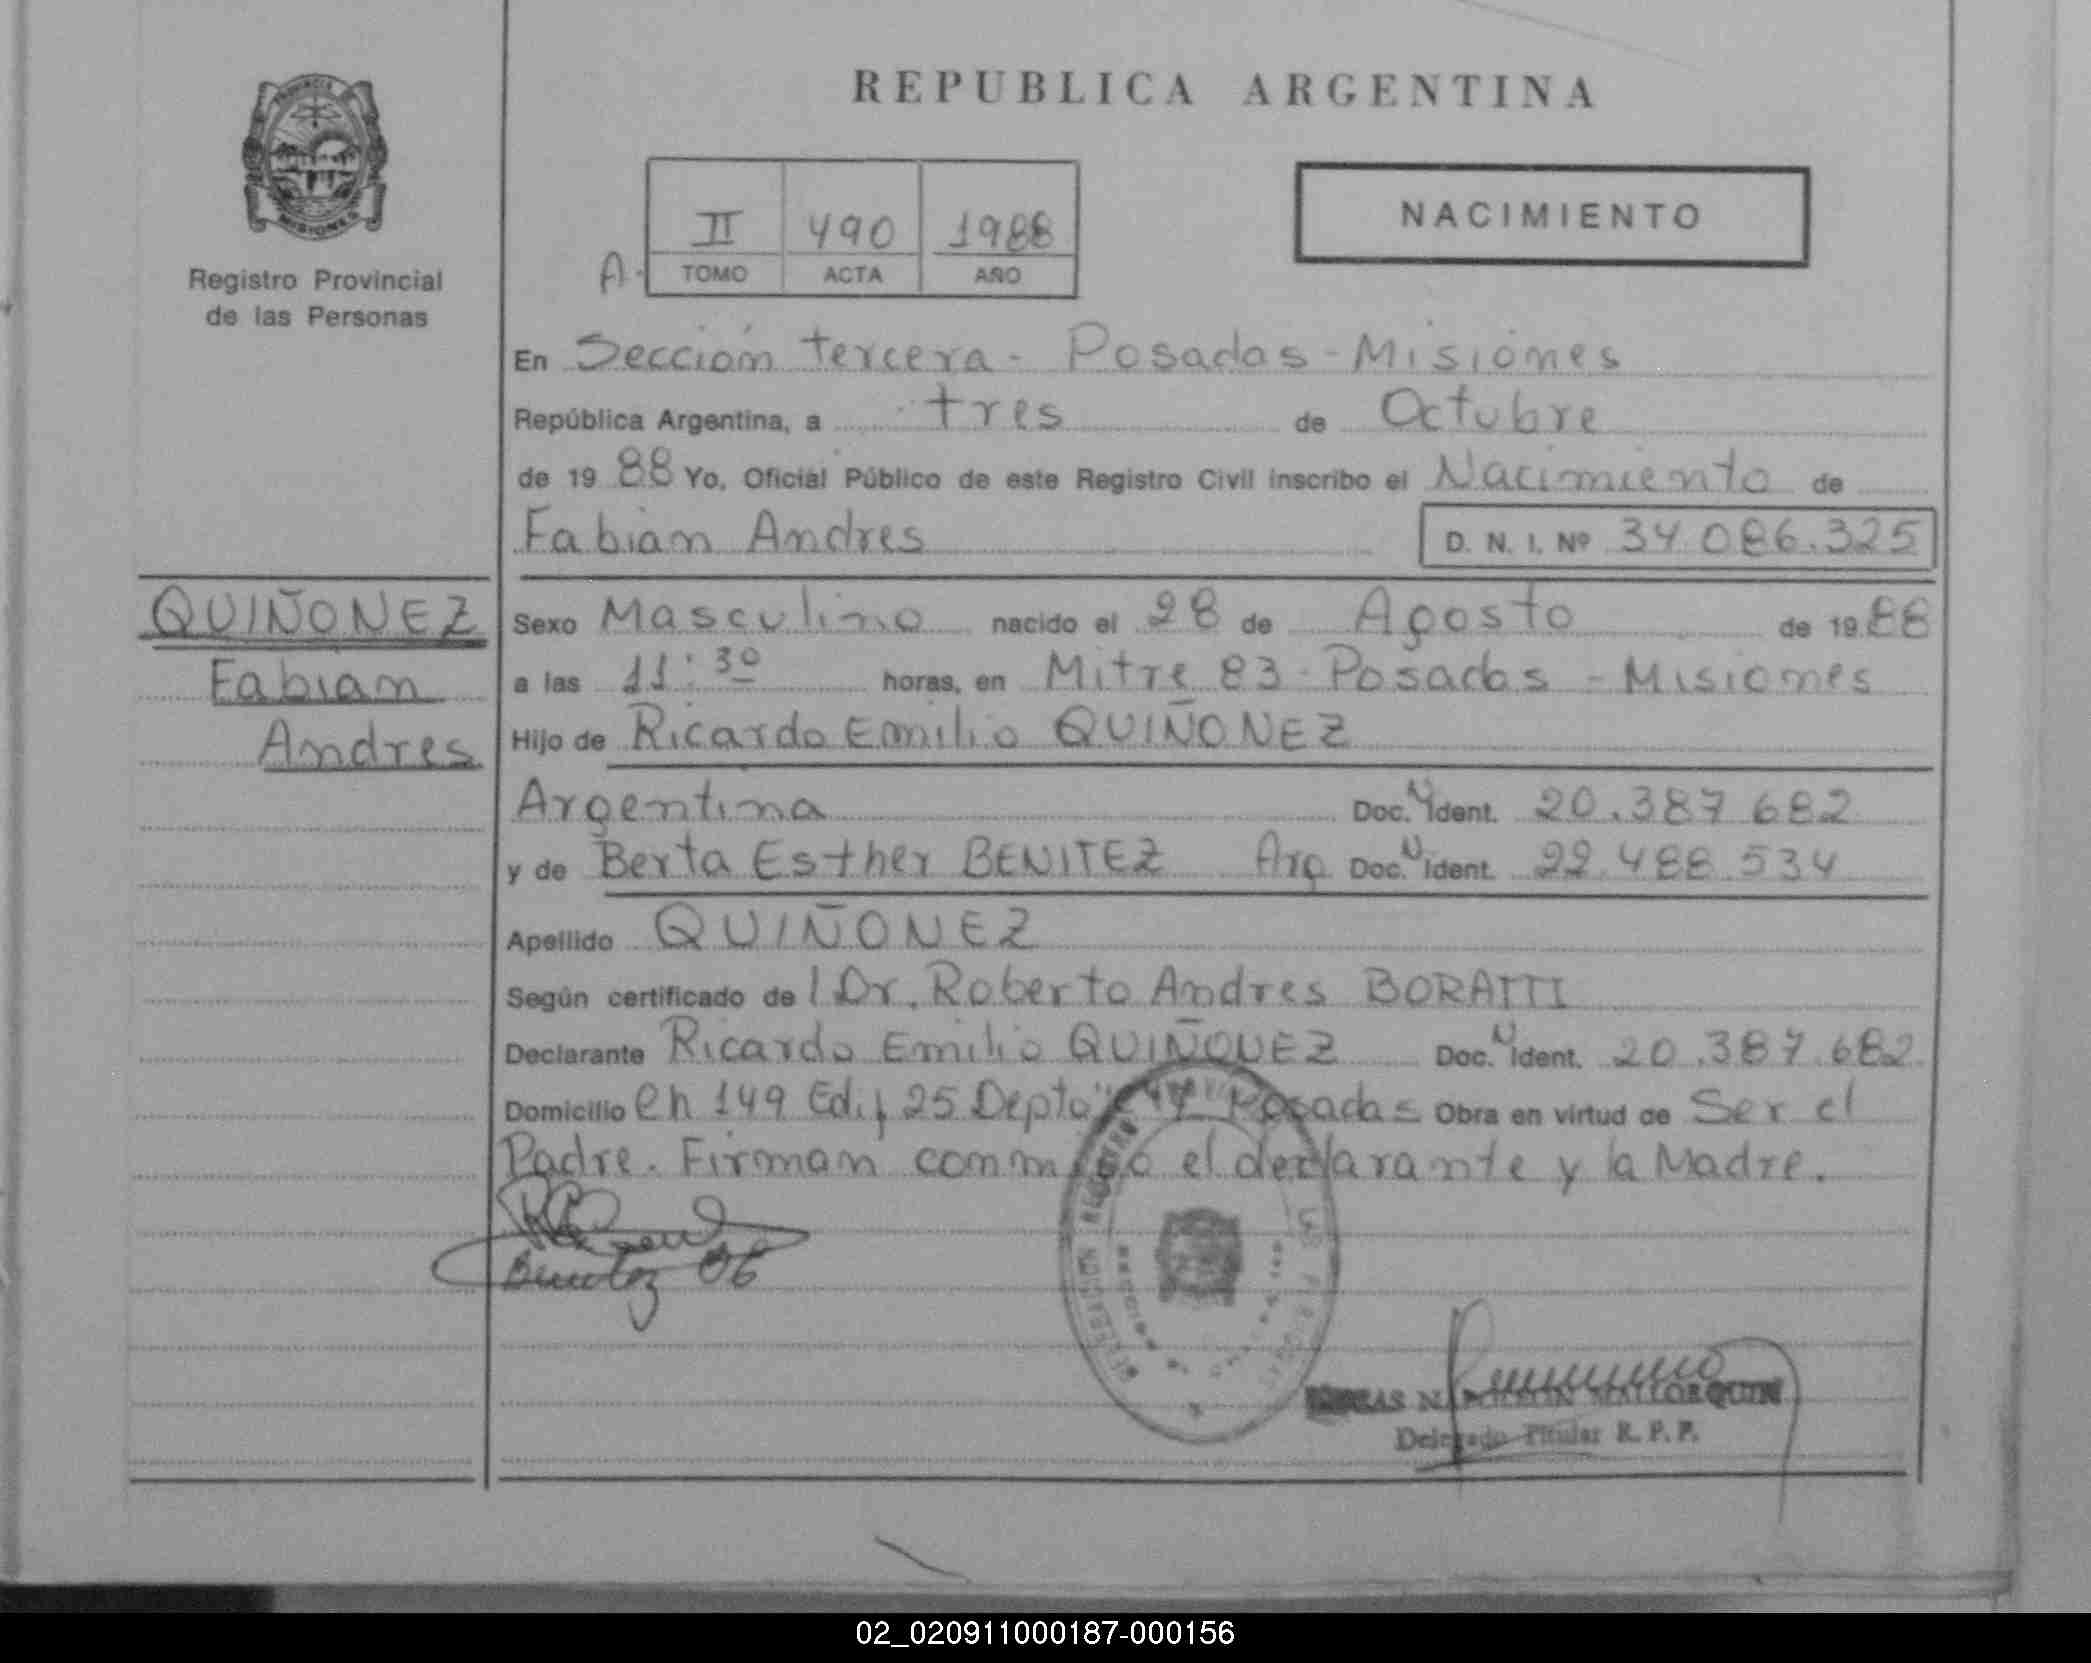 REPUBLICA ARGENTINA
PROVINCIA
MISIONES
Registro Provincial
de las Personas
A. II 490 1988
TOMO ACTA AÑO
NACIMIENTO
En Sección tercera - Posadas - Misiones
República Argentina, a tres de Octubre
de 19 88 Yo, Oficial Público de este Registro Civil inscribo el Nacimiento de
Fabian Andres D. N. I. Nº 34.086.325
QUIÑONEZ
Fabian
Andres
Sexo Masculino nacido el 28 de Agosto de 19 88
a las 11:30 horas, en Mitre 83 - Posadas - Misiones
Hijo de Ricardo Emilio QUIÑONEZ
Argentina Doc. N Ident. 20.387.682
y de Berta Esther BENITEZ Arg Doc. N Ident. 22.488.534
Apellido QUIÑONEZ
Según certificado de l Dr. Roberto Andres BORATTI
Declarante Ricardo Emilio QUIÑONEZ Doc. N Ident. 20.387.682
Domicilio Ch 149 Edif 25 Depto Posadas Obra en virtud de Ser el
Padre. Firman conmigo el declarante y la Madre.
Benitez BE
MALLORQUIN
Delegado Titular R. P. P.
02_020911000187-000156